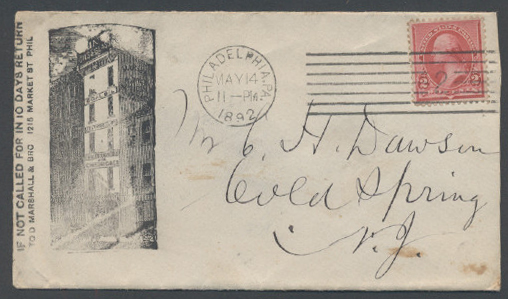 IF NOT CALLED FOR IN 10 DAYS RETURN
TO D MARSHALL & BRO 1215 MARKET ST PHIL
PHILADELPHIA, PA.
MAY 14
11-PM
1892
2 2
Mr C. H. Dawson
Cold Spring
N.J.